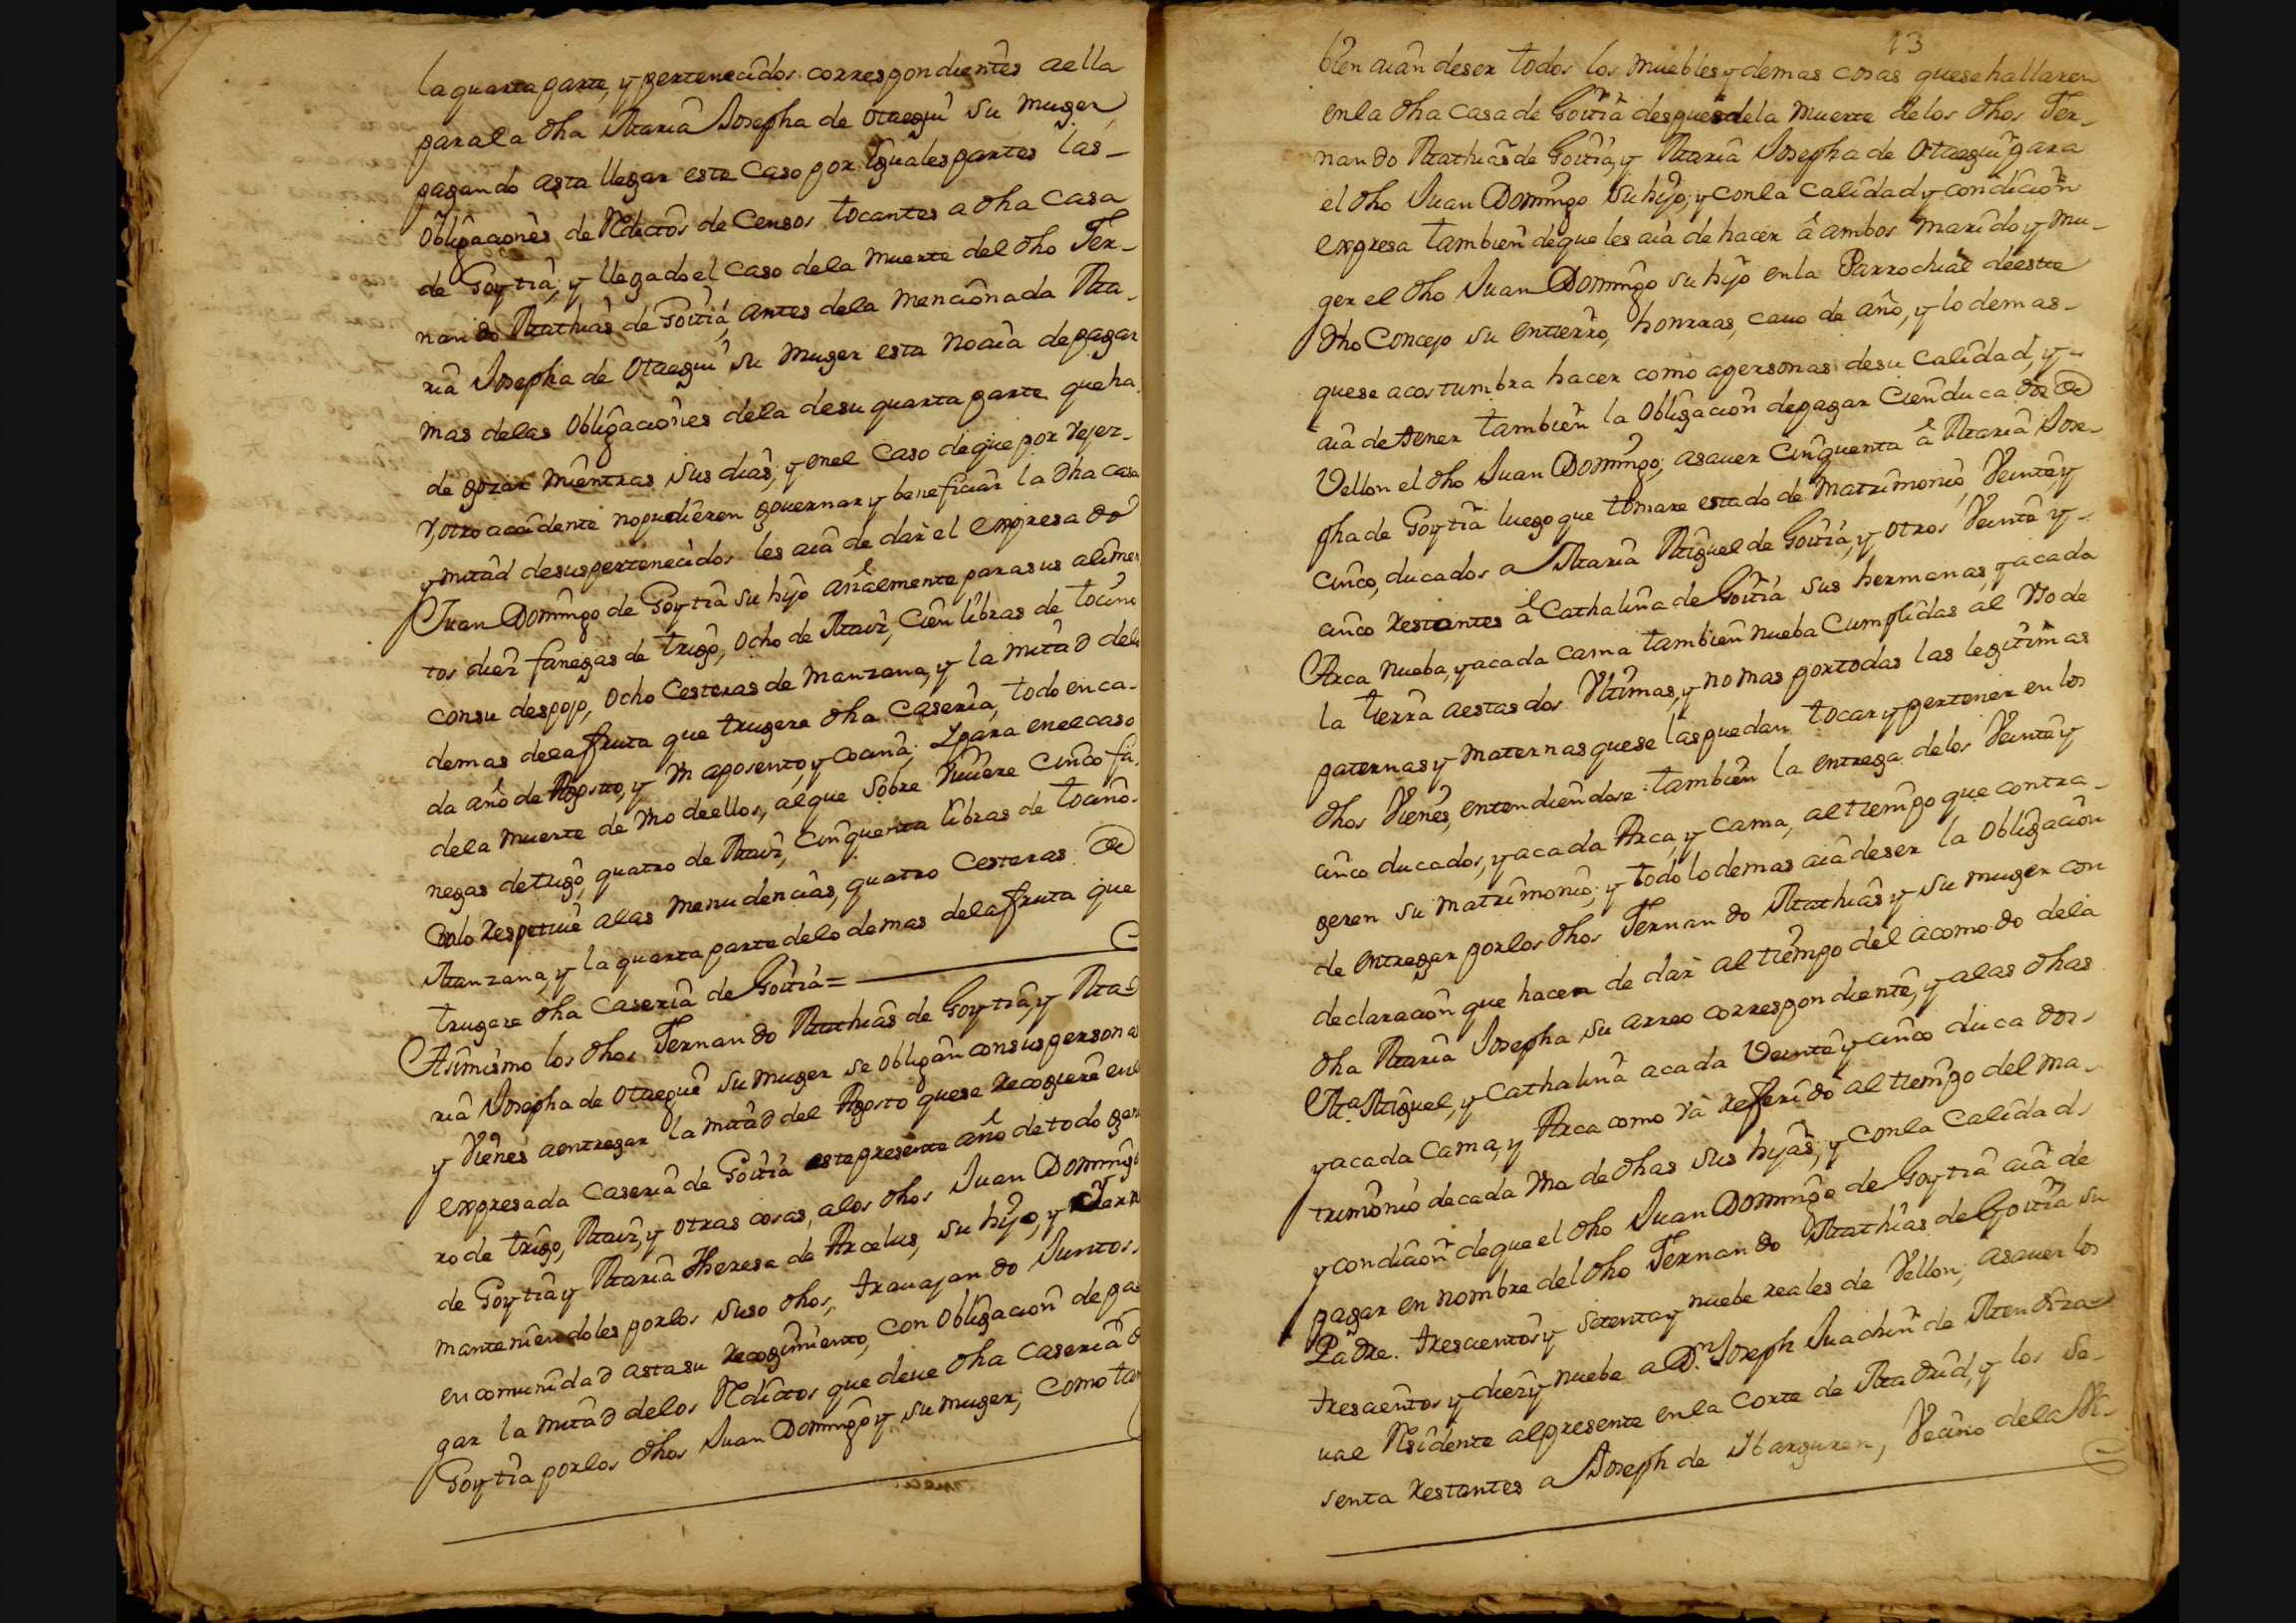 la quarta parte, y pertenecidos correspondientes a ella
para la dha Maria Josepha de Otaegui su Muger
pagando asta llegar este Caso por Iguales partes las
Obligaciones de Reditos de Censos tocantes a dha Casa
de Goytia; y llegado el caso de la Muerte del dho Fer-
nando Mathias de Goitia, antes de la Mencionada Ma-
ria Josepha de Otaegui su Muger esta no aia de pagar
mas de las Obligaciones de la de su quarta parte que ha
de gozar Mientras sus dias; y en el Caso de que por Vejez
y, otro accidente no pudieren governar y beneficiar la dha casa
y mitad de sus pertenecidos les aia de dar el expresado
Juan Domingo de Goytia su hijo añalmente para sus alimen
tos diez fanegas de trigo, ocho de Maiz, Cien libras de tocino
con su despojo, ocho Cesteras de Manzana, y la mitad delo
demas de la fruta que trugere dha Caseria, todo en ca-
da año de Agosto, y Vn aposento, y cocina; Y para en el caso
de la Muerte de Vno de ellos, al que Sobre Viviere Cinco fa-
negas de trigo, quatro de Maiz, Cinquenta libras de tocino
Con lo Respetive a las Menudencias, quatro Cesteras de
Manzana, y la quarta parte de lo demas de la fruta que
trugere dha Caseria de Goitia =
Asimismo los dhos Fernando Mathias de Goytia, y Ma-
ria Josepha de Otaegui su muger se obligan con sus personas
y Vienes a entregar la mitad del Agosto que se Recogiere en la
expresada Caseria de Goitia este presente año de todo gene
ro de trigo, Maiz, y otras cosas, a los dhos Juan Domingo
de Goytia y Maria Theresa de Arcelus, su hijo, y
manteniendoles por los suso dhos, travajando Juntos
en comunidad asta su Recogimiento, con Obligacion de pa
gar la mitad de los Reditos que deve dha Caseria de
Goytia por los dhos Juan Domingo y su muger; Como tam
13
bien aian de ser todos los Muebles y demas cosas que se hallaren
en la dha Casa de Goitia despues de la Muerte de los dhos Fer-
nando Mathias de Goitia, y Maria Josepha de Otaegui para
el dho Juan Domingo su hijo; y con la Calidad y condicion
expresa tambien de que les aia de hacer â ambos Marido y Mu-
ger el dho Juan Domingo su hijo en la Parrochial de este
dho Concejo su entierro, honrras, cavo de año, y lo demas
que se acostumbra hacer como a personas de su Calidad, y
aia de tener tambien la Obligacion de pagar Cien ducados de
Vellon el dho Juan Domingo; asaver Cinquenta â Maria Jose-
pha de Goytia luego que tomare estado de Matrimonio, Veinte y
Cinco, ducados a Maria Miguel de Goitia, y otros Veinte y
cinco Restantes â Cathalina de Goitia sus hermanas, y a cada
Arca nueba, y a cada cama tambien nueba Cumplidas al Vso de
la tierra a estas dos Vltimas, y no mas por todas las legitimas
paternas y Maternas que se las puedan tocar y pertener en los
dhos Vienes, entendiendose tambien la entrega de los Veinte y
cinco ducados, y a cada Arca, y Cama, al tiempo que contra-
geren su matrimonio; y todo lo demas aia de ser la Obligacion
de entregar por los dhos Fernando Mathias y su muger con
declaracion que hacen de dar al tiempo del acomodo de la
dha Maria Josepha su arreo correspondiente, y a las dhas
Ma. Miguel, y Cathalina a cada Veinte y cinco ducados
y a cada Cama, y Arca como va Referido al tiempo del Ma-
trimonio de cada Vna de dhas sus hijas; y con la Calidad
y condicion de que el dho Juan Domingo de Goytia aia de
pagar en nombre del dho Fernando Mathias de Goitia su
Padre. trescientos y setenta y nuebe reales de Vellon; asaver los
trescientos y diez y nuebe a Dn. Joseph Juachin de Mendiza-
val Residente al presente en la Corte de Madrid, y los se-
senta Restantes a Joseph de Ibarguren, Vecino de la Vi-